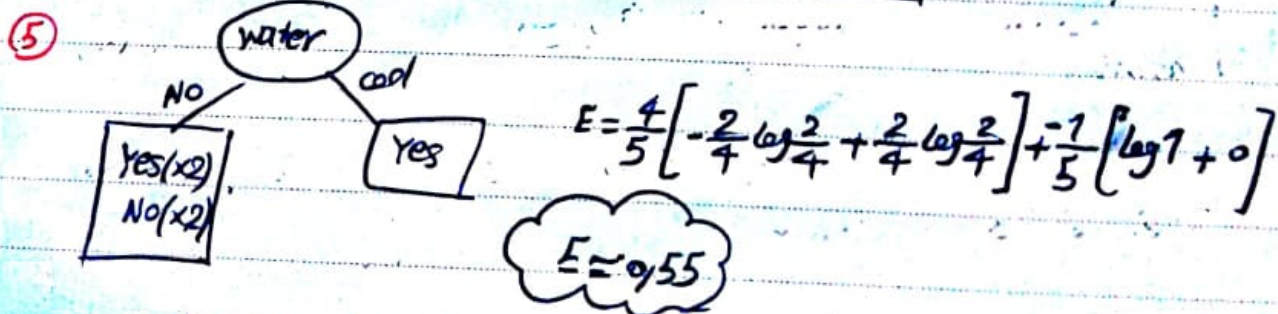 5
water
NO
cool
Yes(x2)
NO(x2)
Yes
E = 4/5 [ - 2/4 log 2/4 + 2/4 log 2/4 ] + -1/5 [ log 1 + 0 ]
E ≈ 0,55